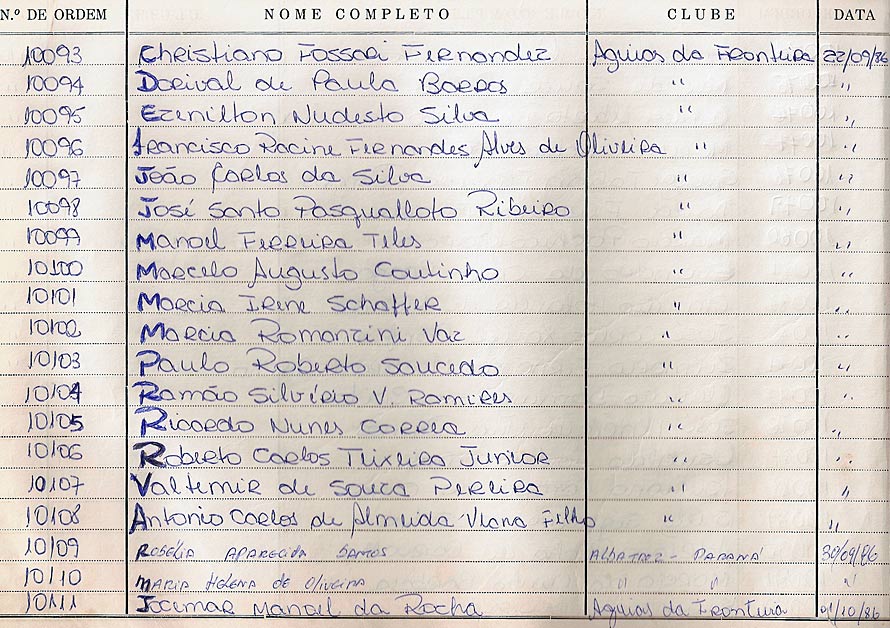 N.º DE ORDEM NOME COMPLETO CLUBE DATA
10093 Christiano Fossari Fernandez Aguias da Fronteira 22/09/86
10094 Dorival de Paula Barros " "
10095 Ezenilton Nudesto Silva " "
10096 Francisco Racine Fernandes Alves de Oliveira " "
10097 João Carlos da Silva " "
10098 José Santo Pasqualloto Ribeiro " "
10099 Manoel Ferreira Teles " "
10100 Marcelo Augusto Coutinho " "
10101 Marcia Irene Schaffer " "
10102 Marcia Romanzini Vaz " "
10103 Paulo Roberto Saucedo " "
10104 Ramão Silvério V. Ramires " "
10105 Ricardo Nunes Correa " "
10106 Roberto Carlos Teixeira Junior " "
10107 Valtemir de Souza Pereira " "
10108 Antonio Carlos de Almeida Viana Filho " "
10109 Rosélia Aparecida Santos Albatroz - Paraná 30/09/86
10110 Maria Helena de Oliveira " " "
10111 Jocimar Manoel da Rocha Aguias da Fronteira 01/10/86